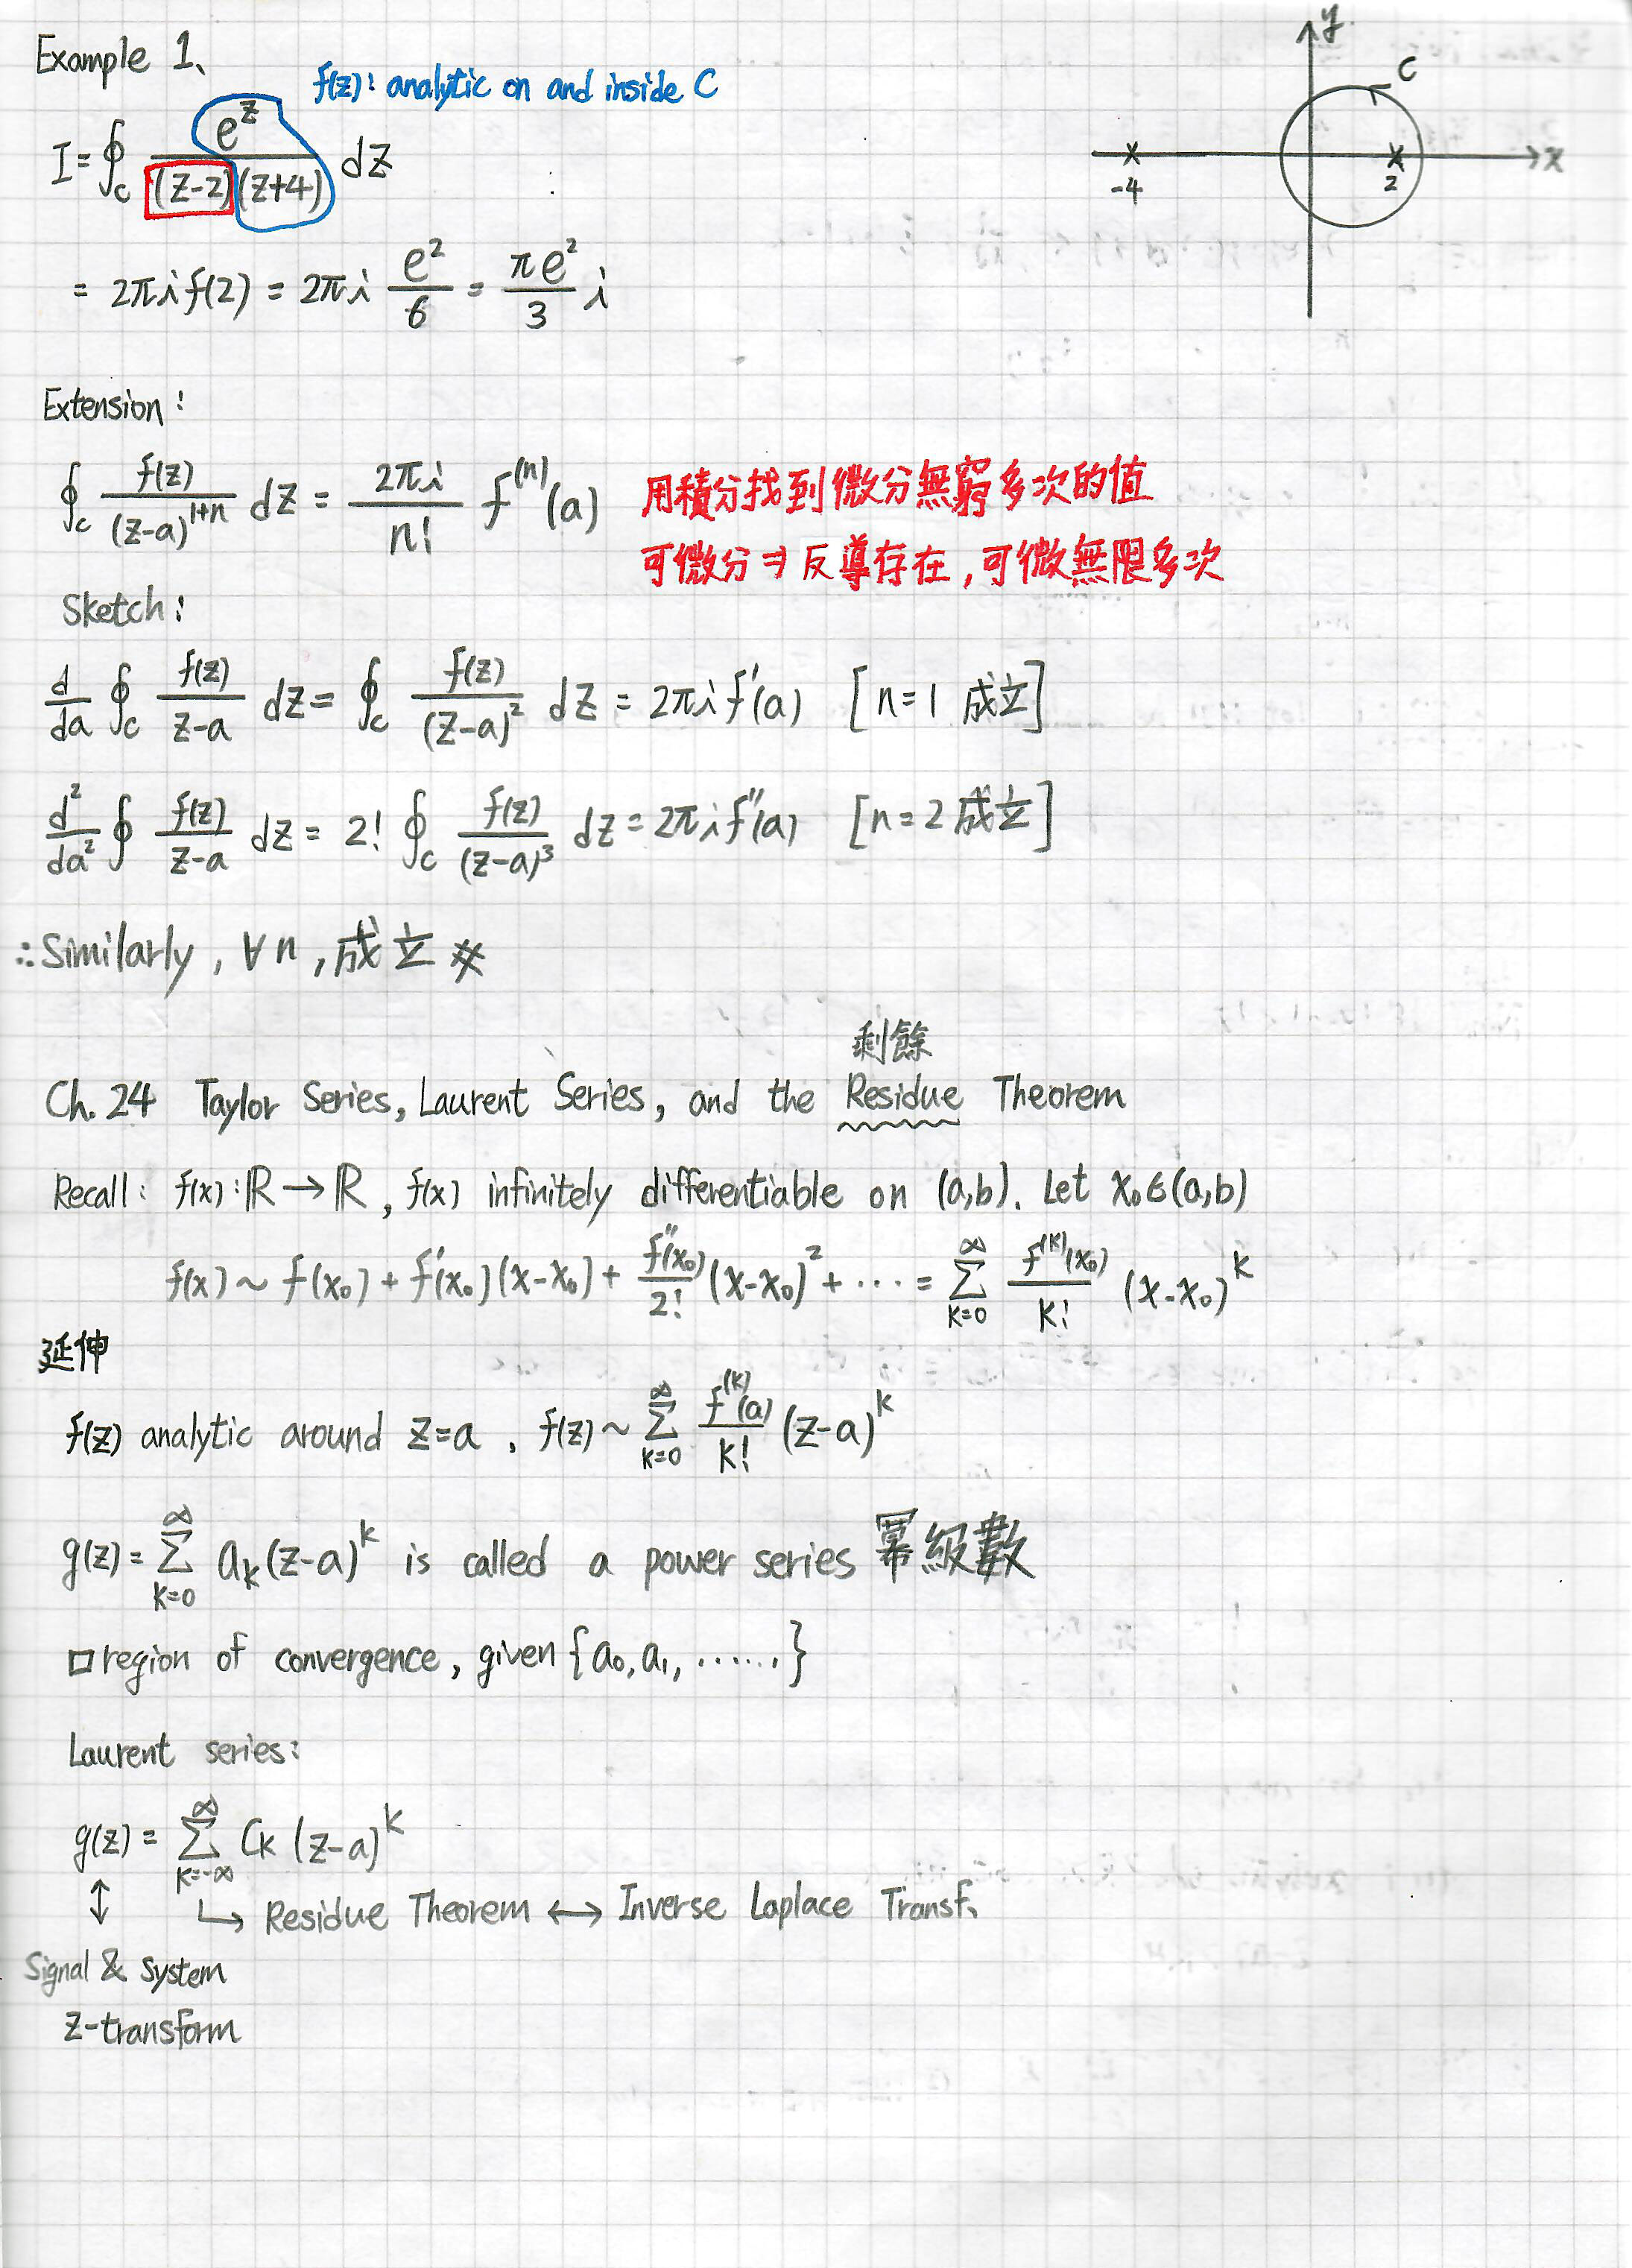 Example 1、
f(z): analytic on and inside C
I = ∮_C e^z / ((z-2)(z+4)) dz
= 2πi f(2) = 2πi e²/6 = πe²/3 i
y
C
x
-4
2
Extension:
∮_C f(z)/(z-a)^{1+n} dz = 2πi/n! f^{(n)}(a)
用積分找到微分無窮多次的值
可微分⇒反導存在,可微無限多次
Sketch:
d/da ∮_C f(z)/(z-a) dz = ∮_C f(z)/(z-a)² dz = 2πi f'(a) [n=1 成立]
d²/da² ∮ f(z)/(z-a) dz = 2! ∮_C f(z)/(z-a)³ dz = 2πi f''(a) [n=2 成立]
∴Similarly, ∀n, 成立 ※
剩餘
Ch.24 Taylor Series, Laurent Series, and the Residue Theorem
Recall: f(x): ℝ → ℝ, f(x) infinitely differentiable on (a,b). Let x₀∈(a,b)
f(x) ~ f(x₀) + f'(x₀)(x-x₀) + f''(x₀)/2! (x-x₀)² + ⋯ = Σ_{k=0}^{∞} f^{(k)}(x₀)/k! (x-x₀)^k
延伸
f(z) analytic around z=a , f(z) ~ Σ_{k=0}^{∞} f^{(k)}(a)/k! (z-a)^k
g(z) = Σ_{k=0}^{∞} a_k (z-a)^k is called a power series 冪級數
□ region of convergence, given {a₀, a₁, ⋯⋯}
Laurent series:
g(z) = Σ_{k=-∞}^{∞} C_k (z-a)^k
↕ ↳ Residue Theorem ↔ Inverse Laplace Transf.
Signal & System
Z-transform